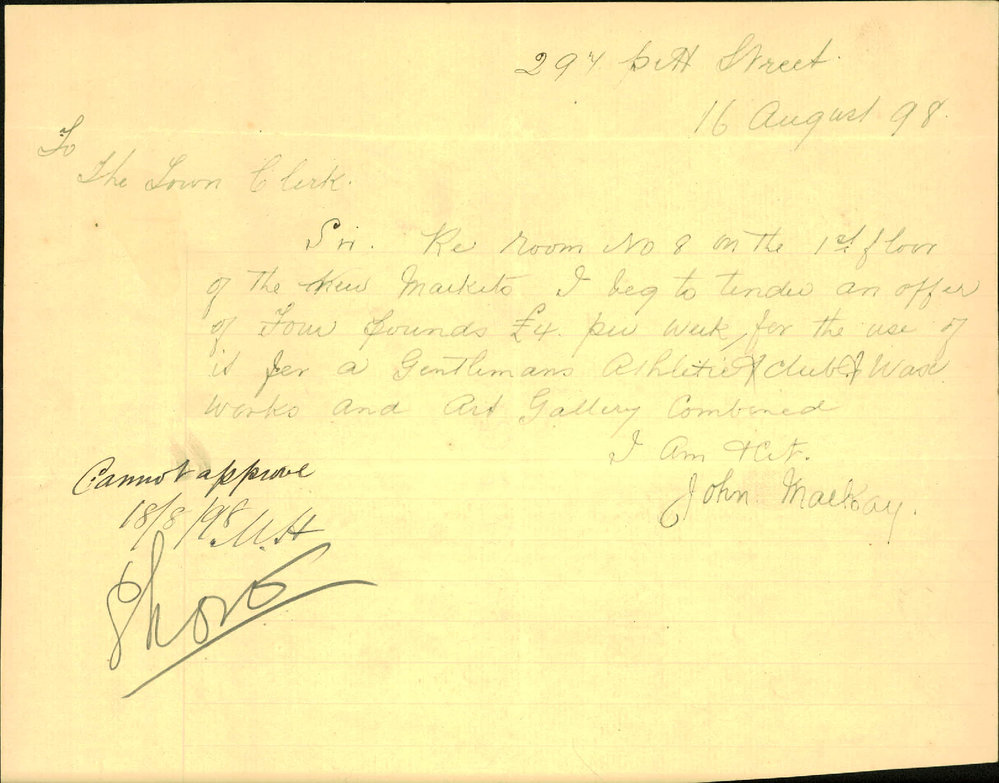 294 pitt Street.
16 August 98.
To
The Town Clerk.
Sir. Re room No 8 on the 1st floor
of the New Markets I beg to tender an offer
of Four pounds £4. per week, for the use of
it for a Gentlemans Athletic club & Wax
works and Art Gallery Combined
I Am &ct.
John Mackay.
Cannot approve
18/8/98